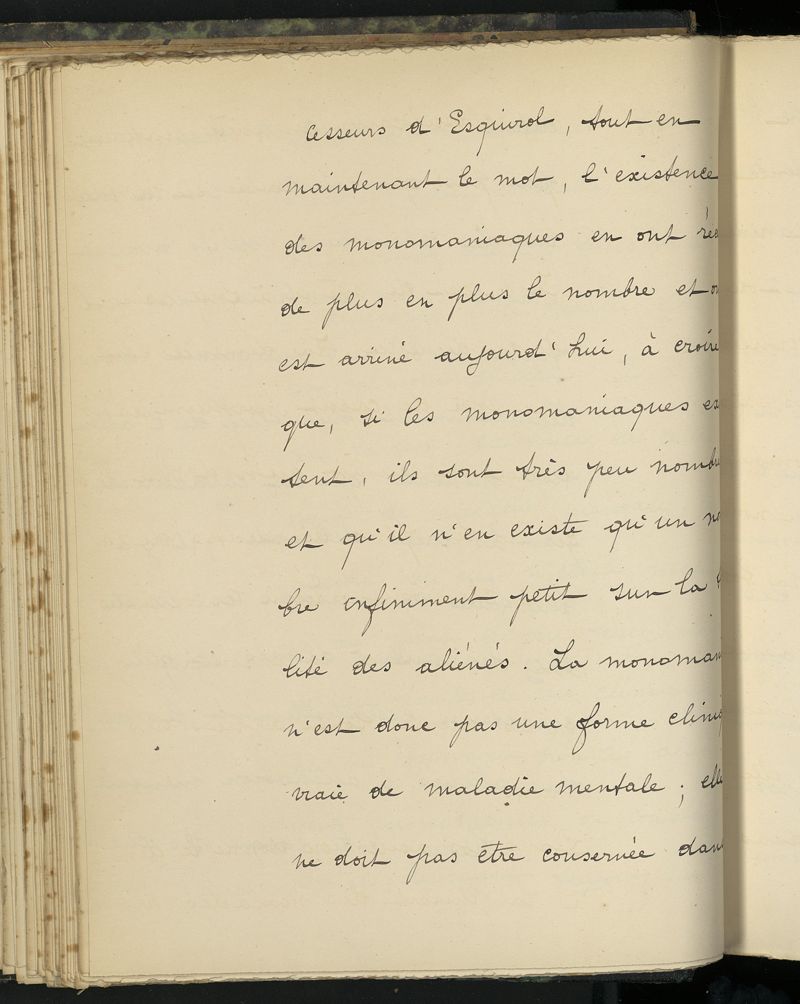 cesseurs d'Esquirol, tout en
maintenant le mot, l'existence
des monomaniaques en ont
de plus en plus le nombre et
est arrivé aujourd'hui, à croire
que, si les monomaniaques
tent, ils sont très peu
et qu'il n'en existe qu'un
bre infiniment petit sur la
lité des aliénés. La
n'est donc pas une forme
vraie de maladie mentale ;
ne doit pas etre conservée